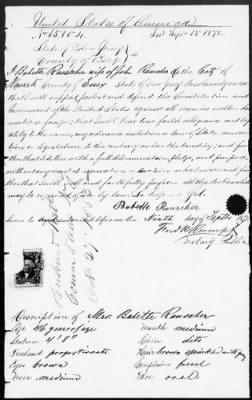 United States of America
State of New Jersey
County of Essex
I Babette Rauscher wife of John Rauscher of the City of
Newark County of Essex State of New Jersey do solemnly swear
that I will support, protect and defend the Constitution and
Government of the United States against all enemies whether do-
mestic or foreign; that I will bear true faith allegiance and loy-
alty to the same, any ordinance, resolution or law of State convention
or legislature to the contrary notwithstanding; and fur-
ther that I do this with a full determination, pledge, and purpose,
without any mental reservation or evasion whatsoever; and fur-
ther that I will well and faithfully perform all the duties which
may be required of me by law. So help me God.
Babette Rauscher
Sworn to and subscribed before me this Ninth day of Sept
Notary Public
Description of Mrs. Babette Rauscher
Age 46 years of age
Mouth medium
Stature 4' 8"
Chin dito
Forehead proportionate
Hair brown
Eyes brown
Complexion
Nose medium
Face oval.